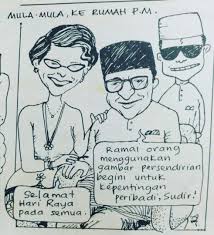 MULA-MULA, KE RUMAH P.M.
Selamat
Hari Raya
pada semua.
Ramai orang
menggunakan
gambar persendirian
begini untuk
kepentingan
peribadi, Sudir!